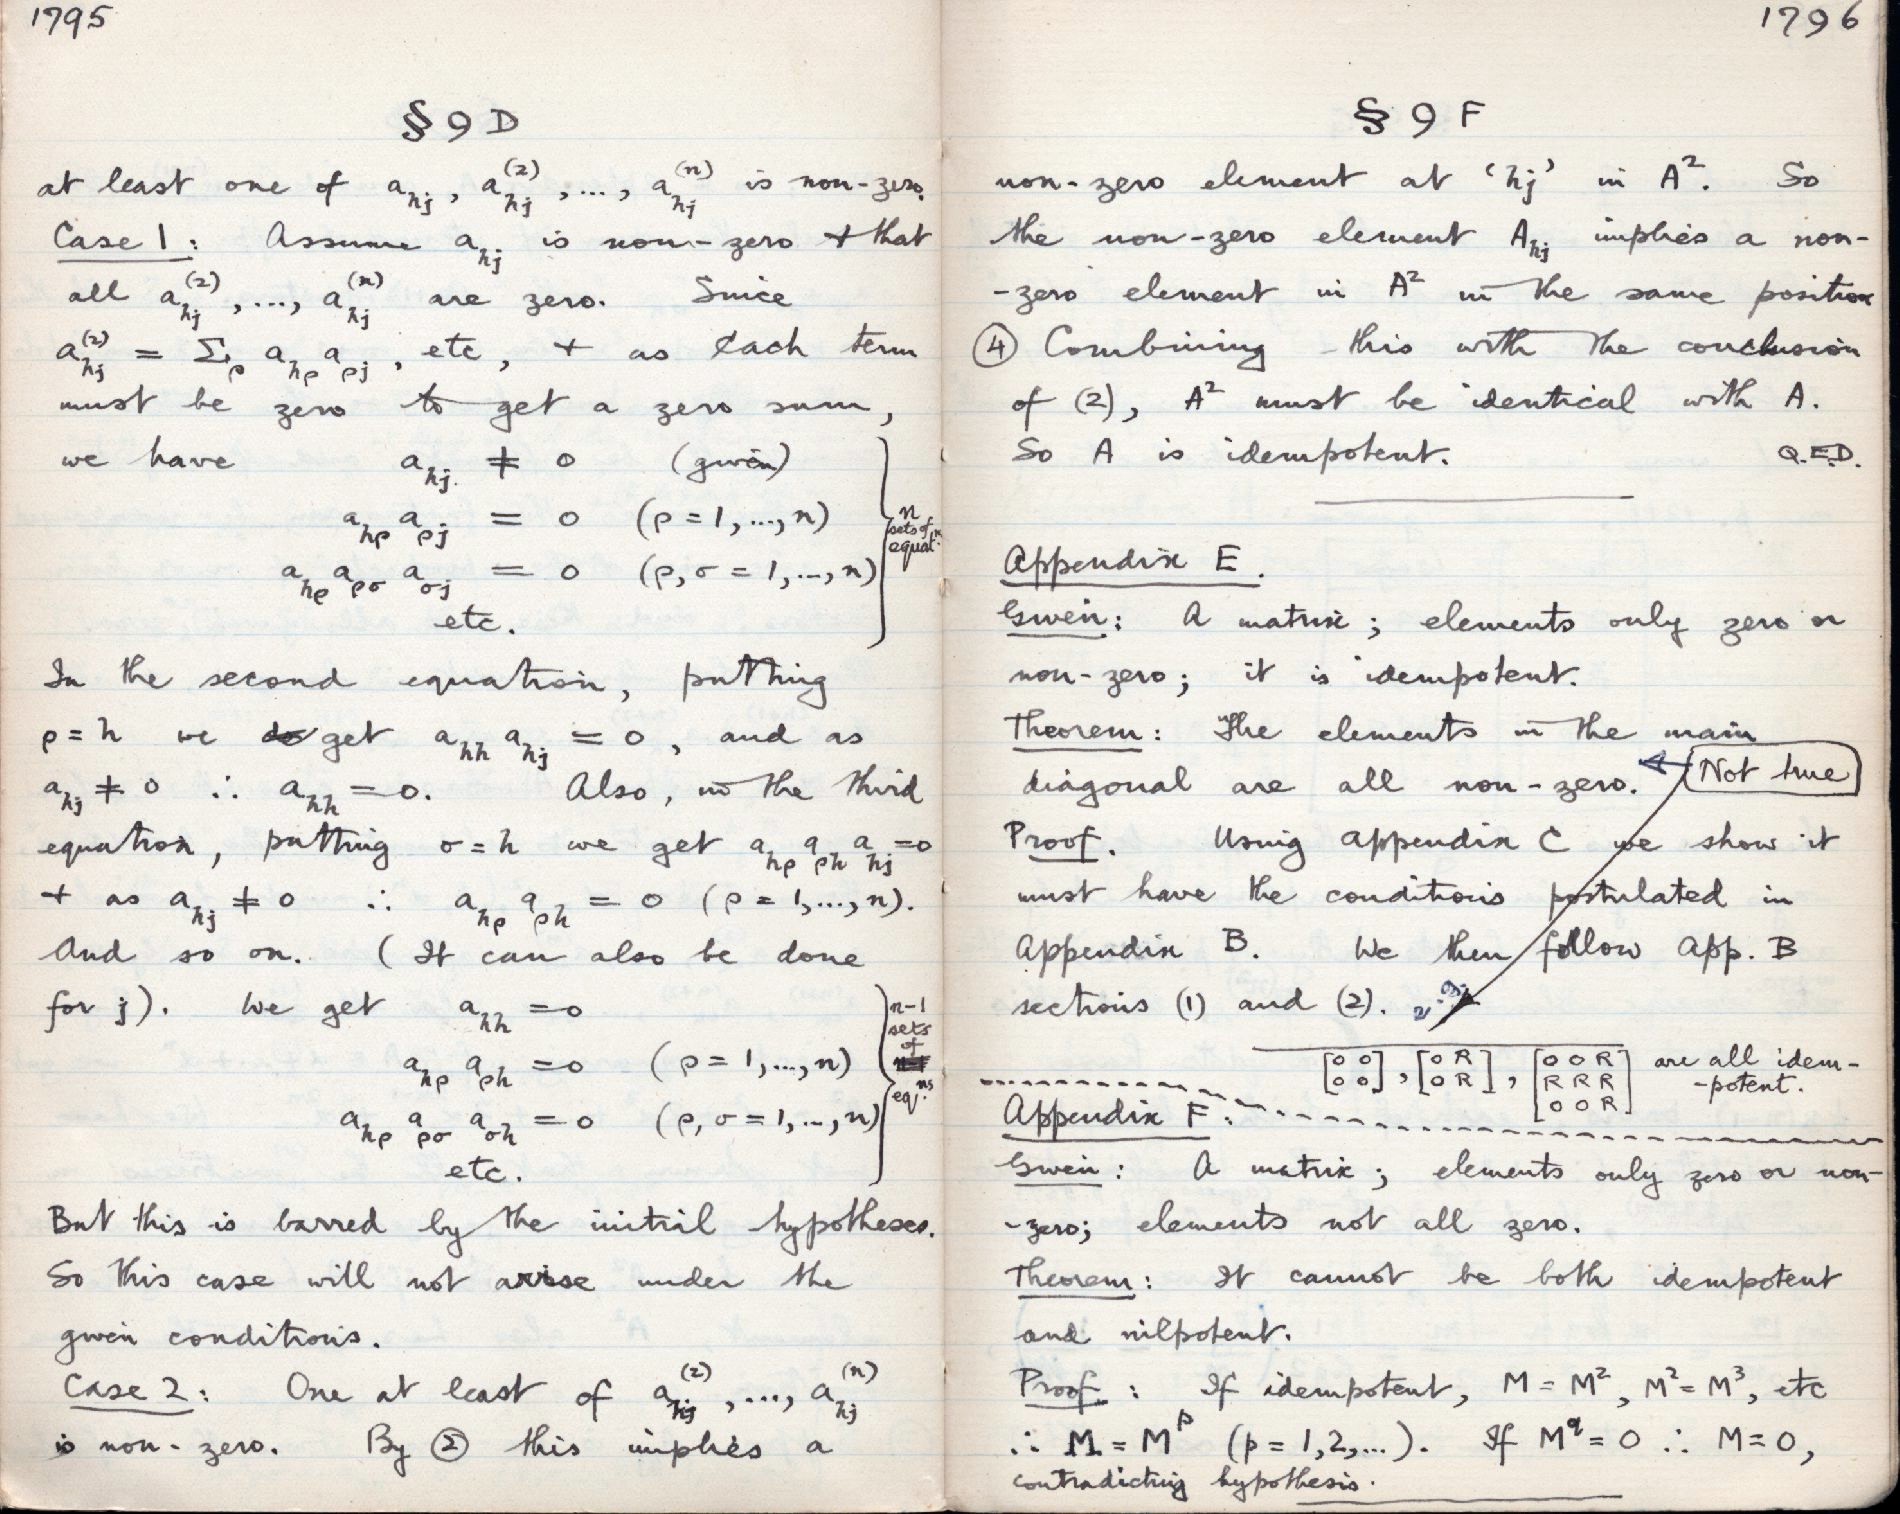 1795
§ 9 D
at least one of a_hj, a_hj^(2), ..., a_hj^(n) is non-zero.
Case 1: Assume a_hj is non-zero + that
all a_hj^(2), ..., a_hj^(n) are zero. Since
a_hj^(2) = Σ_ρ a_hρ a_ρj, etc, + as each term
must be zero to get a zero sum,
we have a_hj ≠ 0 (given)
a_hρ a_ρj = 0 (ρ = 1, ..., n)
a_hρ a_ρσ a_σj = 0 (ρ, σ = 1, ..., n)
etc.
n
sets of
equat^ns
In the second equation, putting
ρ = h we get a_hh a_hj = 0, and as
a_hj ≠ 0 ∴ a_hh = 0. Also, in the third
equation, putting σ = h we get a_hρ a_ρh a_hj = 0
+ as a_hj ≠ 0 ∴ a_hρ a_ρh = 0 (ρ = 1, ..., n).
And so on. (It can also be done
for j). We get a_hh = 0
a_hρ a_ρh = 0 (ρ = 1, ..., n)
a_hρ a_ρσ a_σh = 0 (ρ, σ = 1, ..., n)
etc.
n-1
sets
of
eq^ns
But this is barred by the initial hypotheses.
So this case will not arise under the
given conditions.
Case 2: One at least of a_hj^(2), ..., a_hj^(n)
is non-zero. By ② this implies a
1796
§ 9 F
non-zero element at 'hj' in A². So
the non-zero element A_hj implies a non-
-zero element in A² in the same position
④ Combining this with the conclusion
of (2), A² must be identical with A.
So A is idempotent. Q.E.D.
Appendix E.
Given: A matrix; elements only zero or
non-zero; it is idempotent.
Theorem: The elements in the main
diagonal are all non-zero. Not true
Proof. Using appendix C we show it
must have the conditions postulated in
Appendix B. We then follow App. B
sections (1) and (2).
[0 0], [0 R], [0 0 R] are all idem-
[0 0] [0 R] [R R R] -potent.
[0 0 R]
Appendix F:
Given: A matrix; elements only zero or non-
-zero; elements not all zero.
Theorem: It cannot be both idempotent
and nilpotent.
Proof: If idempotent, M = M², M² = M³, etc
∴ M = M^p (p = 1, 2, ...). If M^q = 0 ∴ M = 0,
contradicting hypothesis.